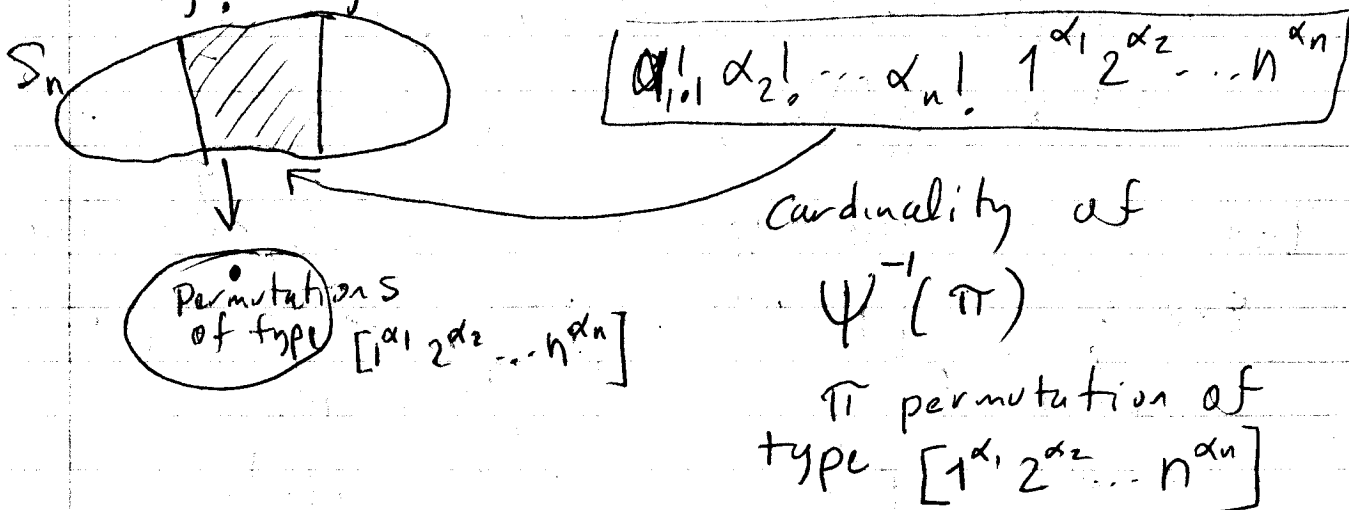 S_n
α_1! α_2! ... α_n! 1^{α_1} 2^{α_2} ... n^{α_n}
cardinality of
ψ^{-1}(π)
permutations
of type [1^{α_1} 2^{α_2} ... n^{α_n}]
π permutation of
type [1^{α_1} 2^{α_2} ... n^{α_n}]